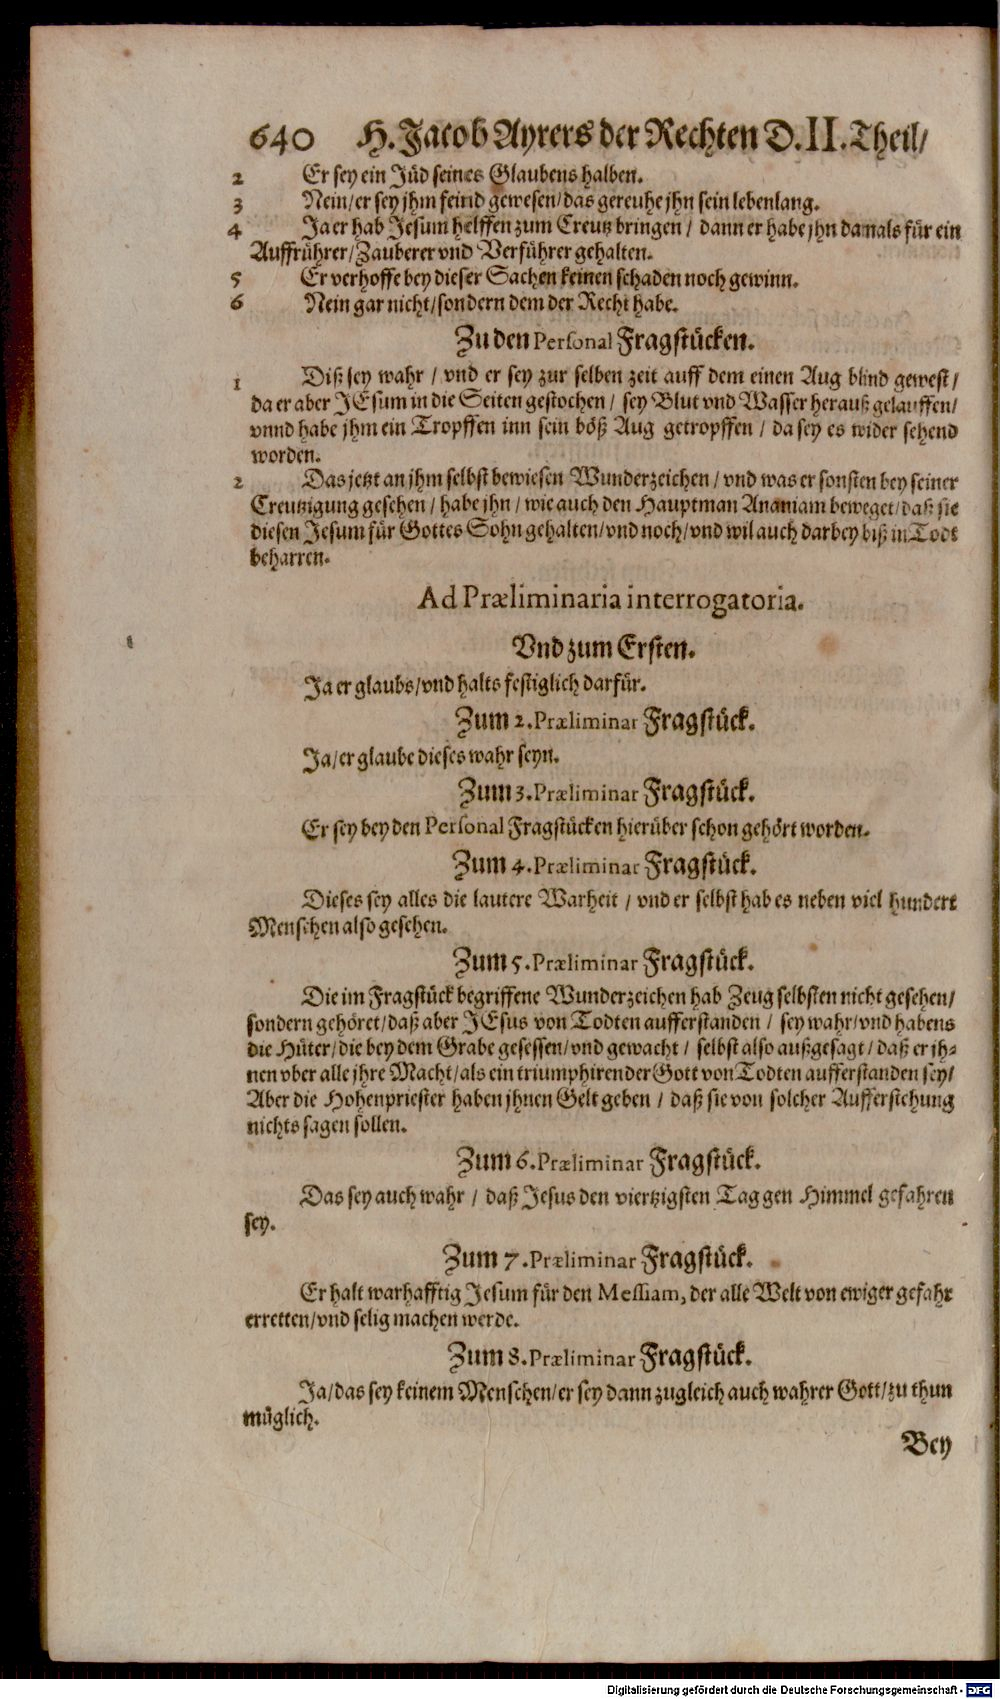 640 H. Jacob Ayrers der Rechten D. II. Theil/
2 Er sey ein Jüd seines Glaubens halben.
3 Nein/ er sey jhm feind gewesen/ das gereuhe jhn sein lebenlang.
4 Ja er hab Jesum helffen zum Creutz bringen / dann er habe jhn damals für ein
Auffrührer/ Zauberer vnd Verführer gehalten.
5 Er verhoffe bey dieser Sachen keinen schaden noch gewinn.
6 Nein gar nicht/ sondern dem der Recht habe.
Zu den Personal Fragstücken.
1 Diß sey wahr / vnd er sey zur selben zeit auff dem einen Aug blind gewest /
da er aber JEsum in die Seiten gestochen / sey Blut vnd Wasser herauß gelauffen/
vnnd habe jhm ein Tropffen inn sein böß Aug getropffen / da sey es wider sehend
worden.
2 Das jetzt an jhm selbst bewiesen Wunderzeichen / vnd was er sonsten bey seiner
Creutzigung gesehen / habe jhn / wie auch den Hauptman Ananiam beweget/ daß sie
diesen Jesum für Gottes Sohn gehalten/ vnd noch/ vnd wil auch darbey biß in Todt
beharren.
Ad Præliminaria interrogatoria.
Vnd zum Ersten.
Ja er glaubs/ vnd halts festiglich darfür.
Zum 2. Præliminar Fragstück.
Ja/ er glaube dieses wahr seyn.
Zum 3. Præliminar Fragstück.
Er sey bey den Personal Fragstücken hierüber schon gehört worden.
Zum 4. Præliminar Fragstück.
Dieses sey alles die lautere Warheit / vnd er selbst hab es neben viel hundert
Menschen also gesehen.
Zum 5. Præliminar Fragstück.
Die im Fragstück begriffene Wunderzeichen hab Zeug selbsten nicht gesehen/
sondern gehöret/ daß aber JEsus von Todten aufferstanden / sey wahr/ vnd habens
die Hüter/ die bey dem Grabe gesessen/ vnd gewacht / selbst also außgesagt / daß er jh-
nen vber alle jhre Macht/ als ein triumphirender Gott von Todten aufferstanden sey/
Aber die Hohenpriester haben jhnen Gelt geben / daß sie von solcher Aufferstehung
nichts sagen sollen.
Zum 6. Præliminar Fragstück.
Das sey auch wahr / daß Jesus den viertzigsten Tag gen Himmel gefahren
sey.
Zum 7. Præliminar Fragstück.
Er halt warhafftig Jesum für den Messiam, der alle Welt von ewiger gefahr
erretten/ vnd selig machen werde.
Zum 8. Præliminar Fragstück.
Ja/ das sey keinem Menschen/ er sey dann zugleich auch wahrer Gott/ zu thun
müglich.
Bey
Digitalisierung gefördert durch die Deutsche Forschungsgemeinschaft - DFG